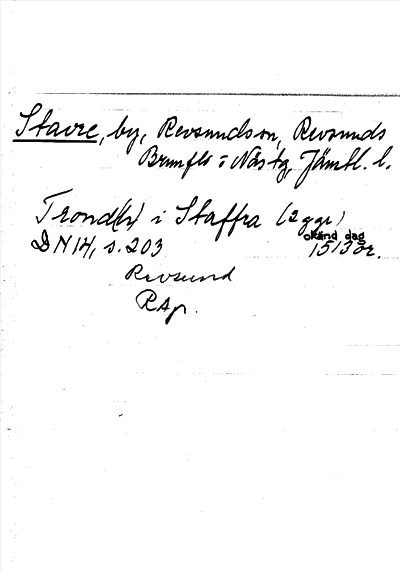 Stavre, by, Revsunds sn, Revsunds
Brunflo o Näs tg, Jämtl. l.
Trond(h) i Staffra (2 ggr)
okänd dag
DN 14, s. 203 1513 or.
Revsund
RAp.